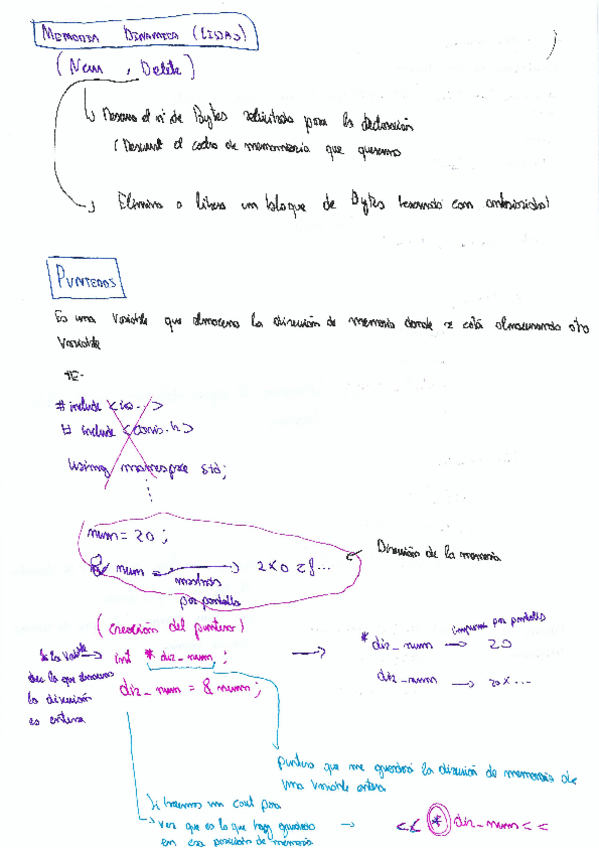 MEMORIA DINAMICA (LISTAS)
(New , Delete)
Reserva el nº de Bytes solicitado para la declaración
(Reservar el cacho de memoria que queremos
Elimina o libera un bloque de Bytes reservado con anterioridad
PUNTEROS
Es una variable que almacena la dirección de memoria donde se está almacenando otra
Variable
# include <io...>
# include <conio.h>
Using namespace std;
num = 20 ;
& num = 2x0 28...
mostrar
por pantalla
Dirección de la memoria
(creación del puntero)
int * dir_num ;
dir_num = & num ;
la dirección
es entera
*dir_num → 20
imprime por pantalla
dir_num → 20x...
puntero que me guardará la dirección de memoria de
una variable entera
Si hacemos un cout para
ver que es lo que hay guardado → << * dir_num <<
en esa posición de memoria